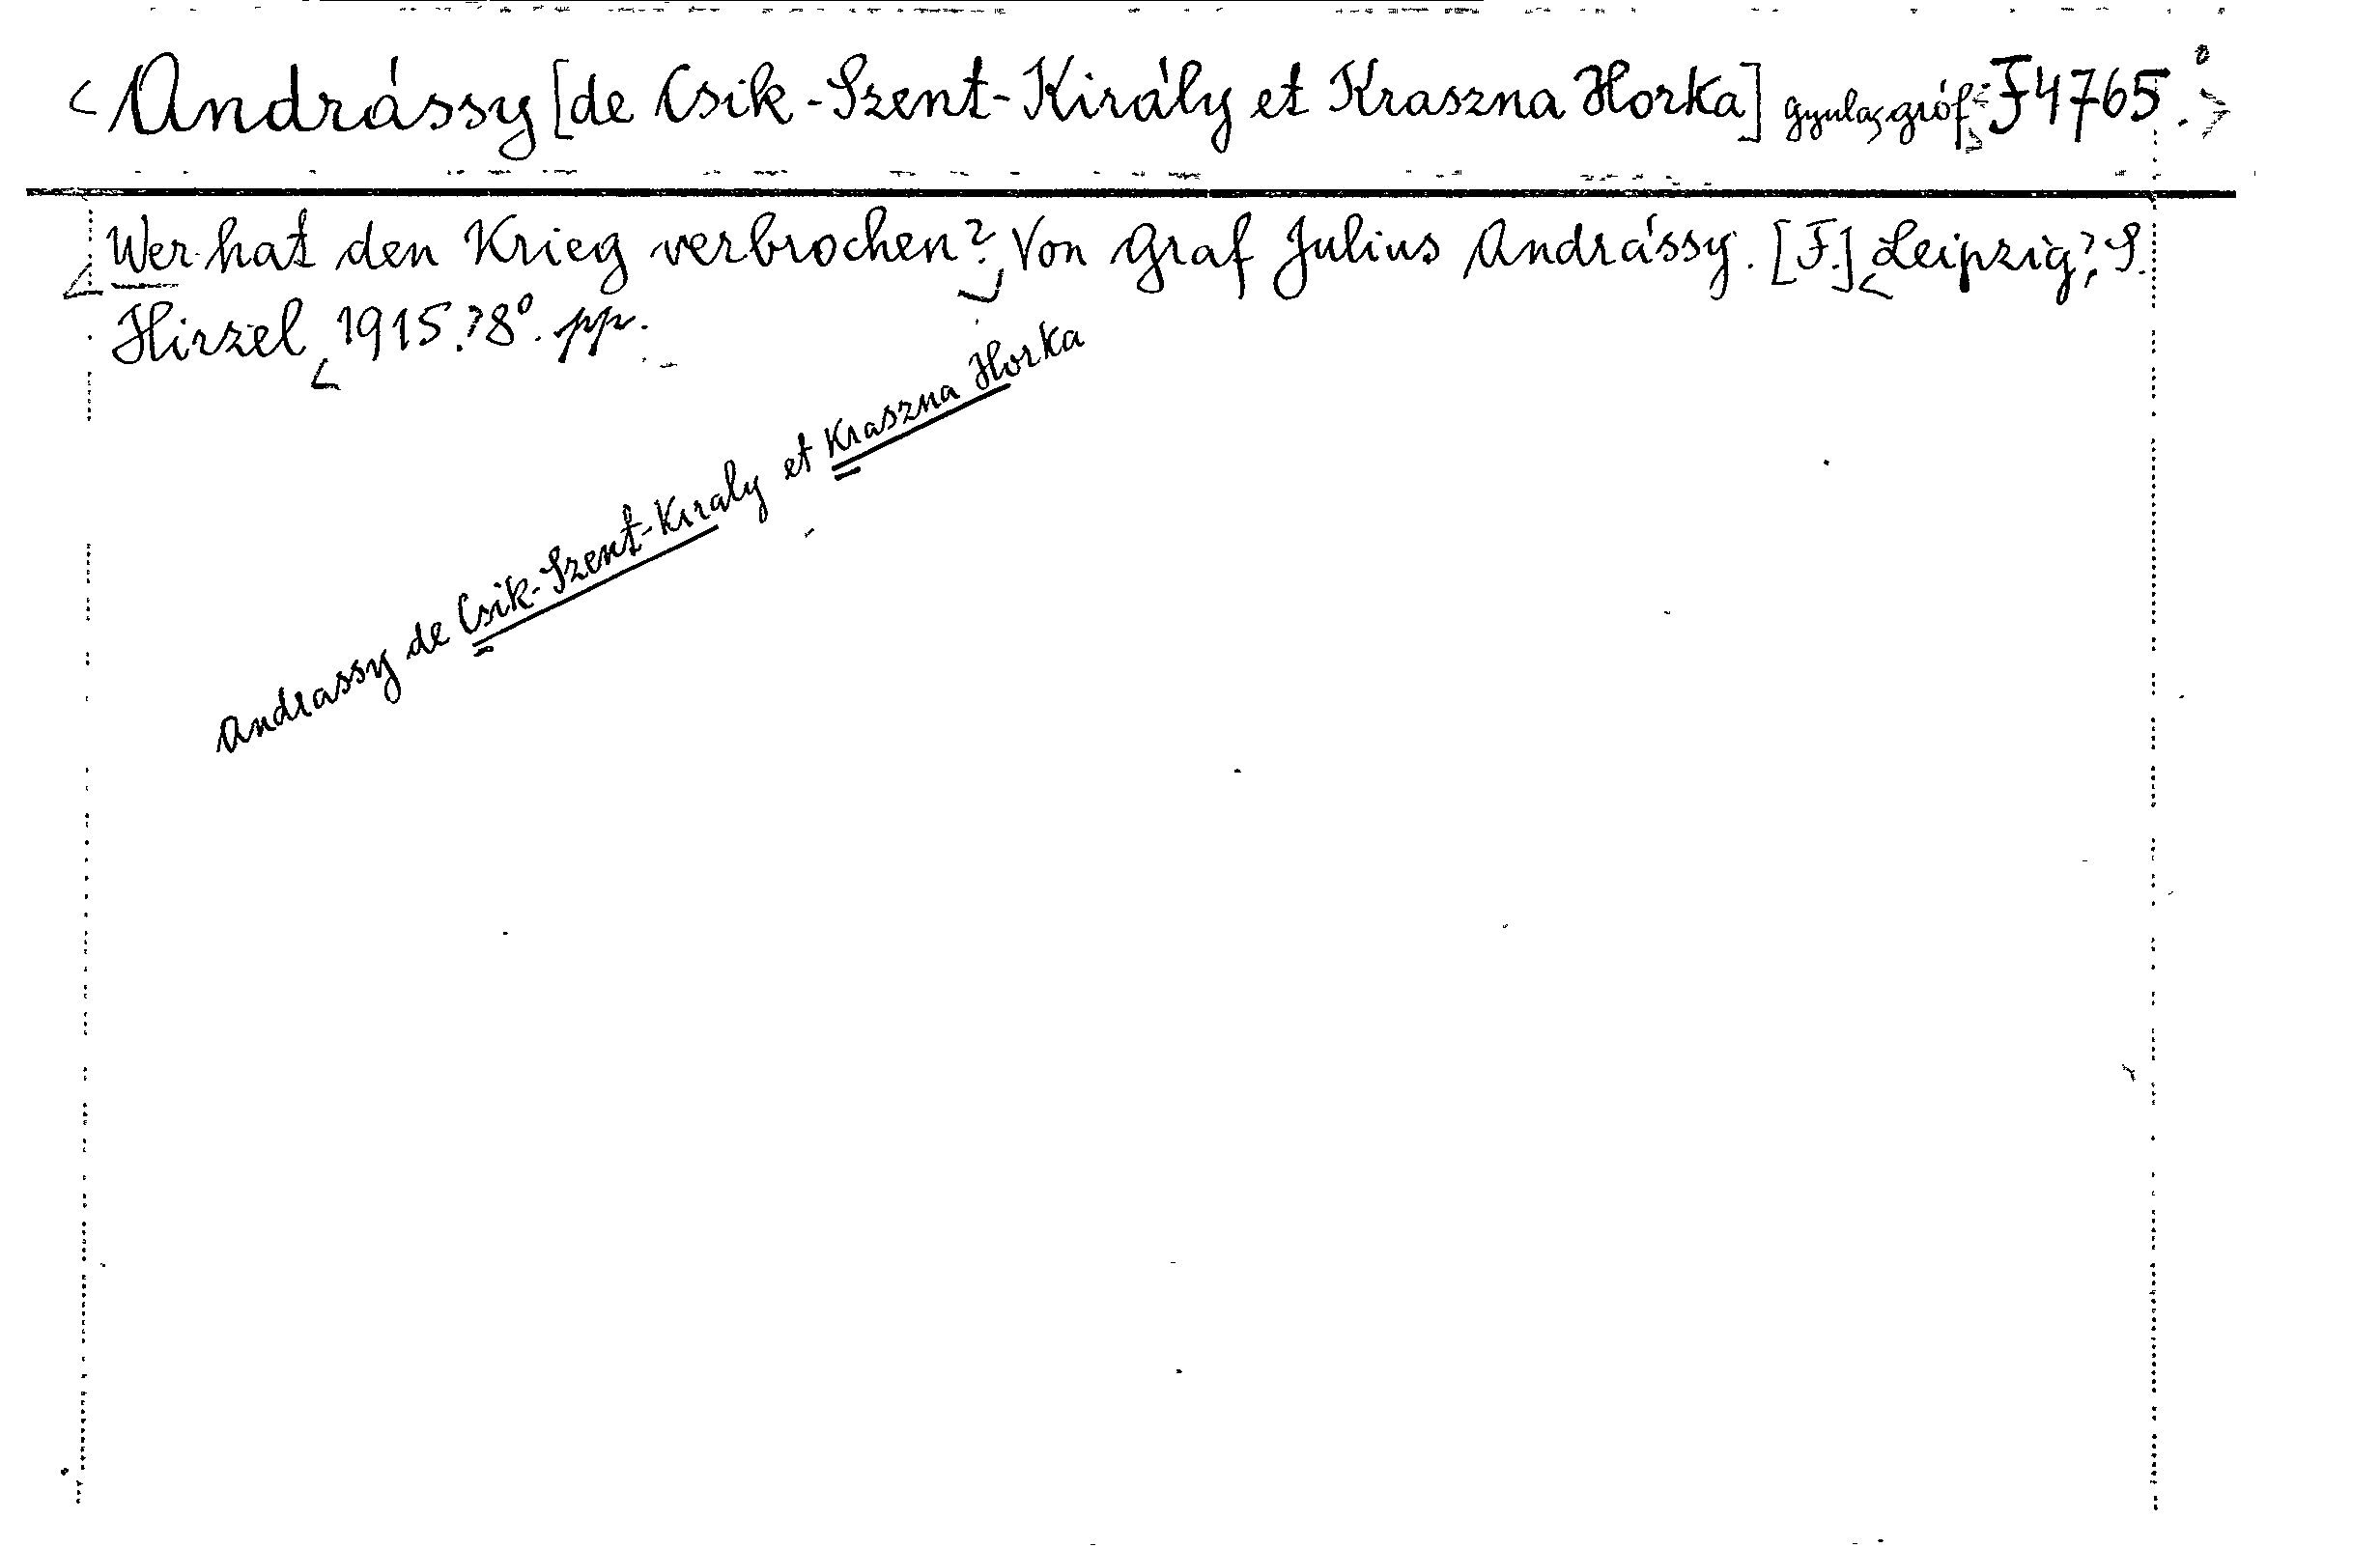 Andrássy [de Csik-Szent-Király et Kraszna Horka] Gyula, gróf F4765.
Wer hat den Krieg verbrochen? Von Graf Julius Andrássy. [F.] Leipzig, S.
Hirzel, 1915. 8°. pp.
Andrassy de Csik-Szent-Kiraly et Kraszna Horka